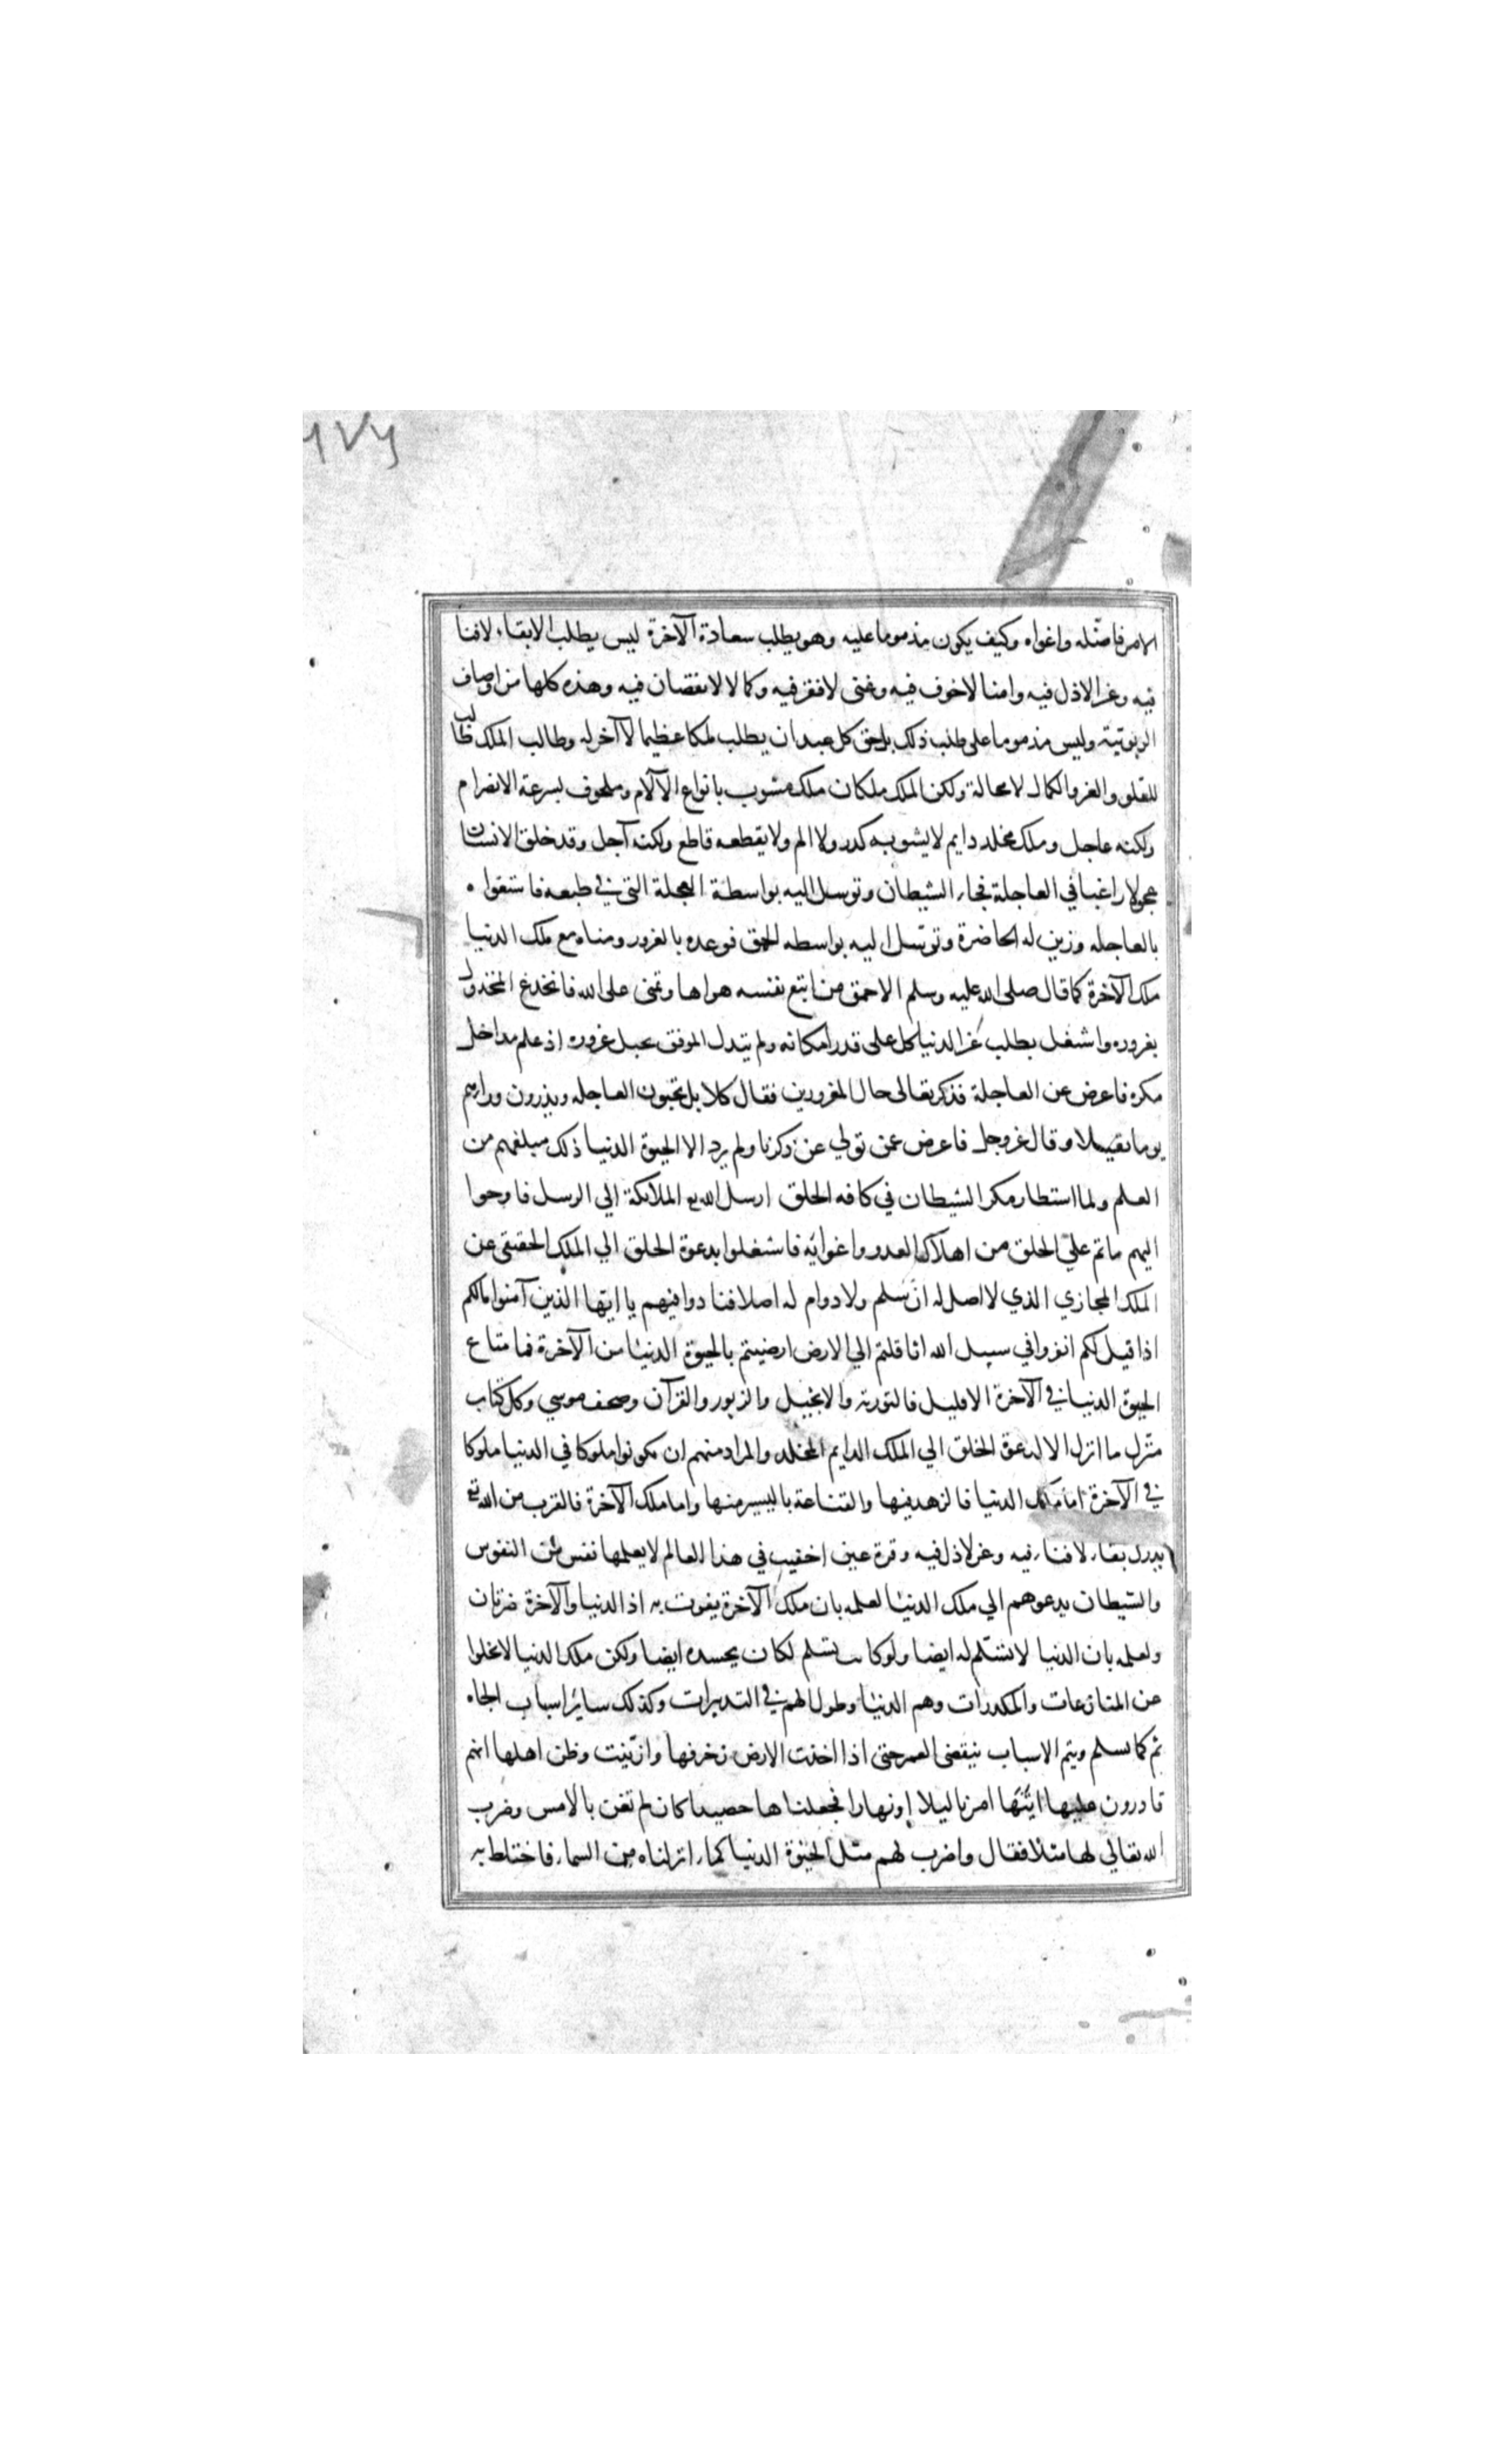 ٦٧٢
الامر فاضله واغواه وكيف يكون مذموما عليه وهو يطلب سعادة الآخرة ليس يطلب الابقاء لافنا
فيه وعز الاذل فيه وامنا لاخوف فيه وغنى لافقر فيه وكمالا لانقصان فيه وهذه كلها من اوصاف
الربوبية وليس مذموما على طلب ذلك بل حق كل عبد ان يطلب ملكا عظيما لا آخر له وطالب الملك طالب
للعلو والعز والكمال لامحالة ولكن الملك ملكان ملك مشوب بانواع الآلام وملحوف بسرعة الانصرام
ولكنه عاجل وملك مخلد دايم لايشوبه كدر ولا الم ولا يقطعه قاطع ولكنه آجل وقد خلق الانسان
عجولا راغبا في العاجلة فجاء الشيطان وتوسل اليه بواسطة العجلة التي في طبعه فاستغواه
بالعاجله وزين له الحاضرة وتوسل اليه بواسطه الحمق فوعده بالغرور ومناه مع ملك الدنيا
ملك الآخرة كما قال صلى الله عليه وسلم الاحمق من اتبع نفسه هواها وتمنى على الله فانخدع المخذول
بغروره واشتغل بطلب عز الدنيا كل على قدر امكانه ولم يتدل الموفق بحبل غروره اذ علم مداخل
مكره فاعرض عن العاجلة فذكر تعالى حال المغرورين فقال كلا بل تحبون العاجله ويذرون وراءهم
يوما ثقيلا وقال عز وجل فاعرض عمن تولي عن ذكرنا ولم يرد الا الحيوة الدنيا ذلك مبلغهم من
العلم ولما استطار مكر الشيطان في كافه الخلق ارسل الله تع الملائكة الي الرسل فاوحوا
اليهم ماتم علي الخلق من اهلاك العدو واغوائه فاشتغلوا بدعوة الخلق الي الملك الحقيقي عن
الملك المجازي الذي لا اصل له ان سلم ولا دوام له اصلا فنادوا فيهم يا ايها الذين آمنوا مالكم
اذا قيل لكم انفروا في سبيل الله اثاقلتم الي الارض ارضيتم بالحيوة الدنيا من الآخرة فما متاع
الحيوة الدنيا في الآخرة الا قليل فالتورية والانجيل والزبور والقرآن وصحف موسي وكل كتاب
منزل ما انزل الا لدعوة الخلق الي الملك الدايم المخلد والمراد منهم ان يكونوا ملوكا في الدنيا ملوكا
في الآخرة اما ملك الدنيا فالزهد فيها والقناعة باليسير منها واما ملك الآخرة فالقرب من الله تع
يدرك بقاء لافناء فيه وعز لاذل فيه وقرة عين اخفيت في هذا العالم لايعلمها نفس من النفوس
والشيطان يدعوهم الي ملك الدنيا لعلمه بان ملك الآخرة يفوت به اذ الدنيا والآخرة ضرتان
ولعلمه بان الدنيا لا تسلم له ايضا ولو كانت تسلم لكان يحسده ايضا ولكن ملك الدنيا لاتخلوا
عن المنازعات والمكدرات وهم الدنيا وطول الهم في التدبيرات وكذلك سائر اسباب الجاه
ثم كما تسلم ويتم الاسباب ينقضي العمر حتى اذا اخذت الارض زخرفها وازينت وظن اهلها انهم
قادرون عليها اتيها امرنا ليلا اونهارا فجعلناها حصيدا كان لم تغن بالامس وضرب
الله تعالي لها مثلا فقال واضرب لهم مثل الحيوة الدنيا كماء انزلناه من السماء فاختلط به